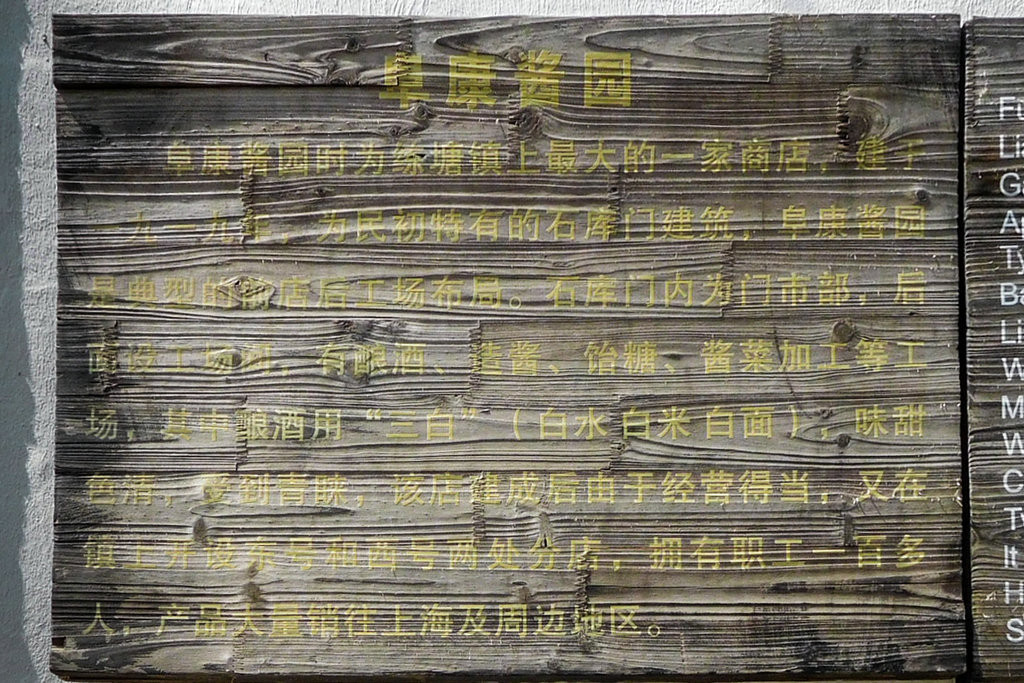 阜康酱园
阜康酱园时为练塘镇上最大的一家商店，建于
一九一九年，为民初特有的石库门建筑，阜康酱园
是典型的前店后工场布局。石库门内为门市部，后
面设工场间，有酿酒、造酱、饴糖、酱菜加工等工
场，其中酿酒用“三白”（白水白米白面），味甜
色清，受到青睐，该店建成后由于经营得当，又在
镇上开设东号和西号两处分店，拥有职工一百多
人，产品大量销往上海及周边地区。
Fu
Li
G
A
Ty
Ba
Li
W
M
W
C
T
It
H
S